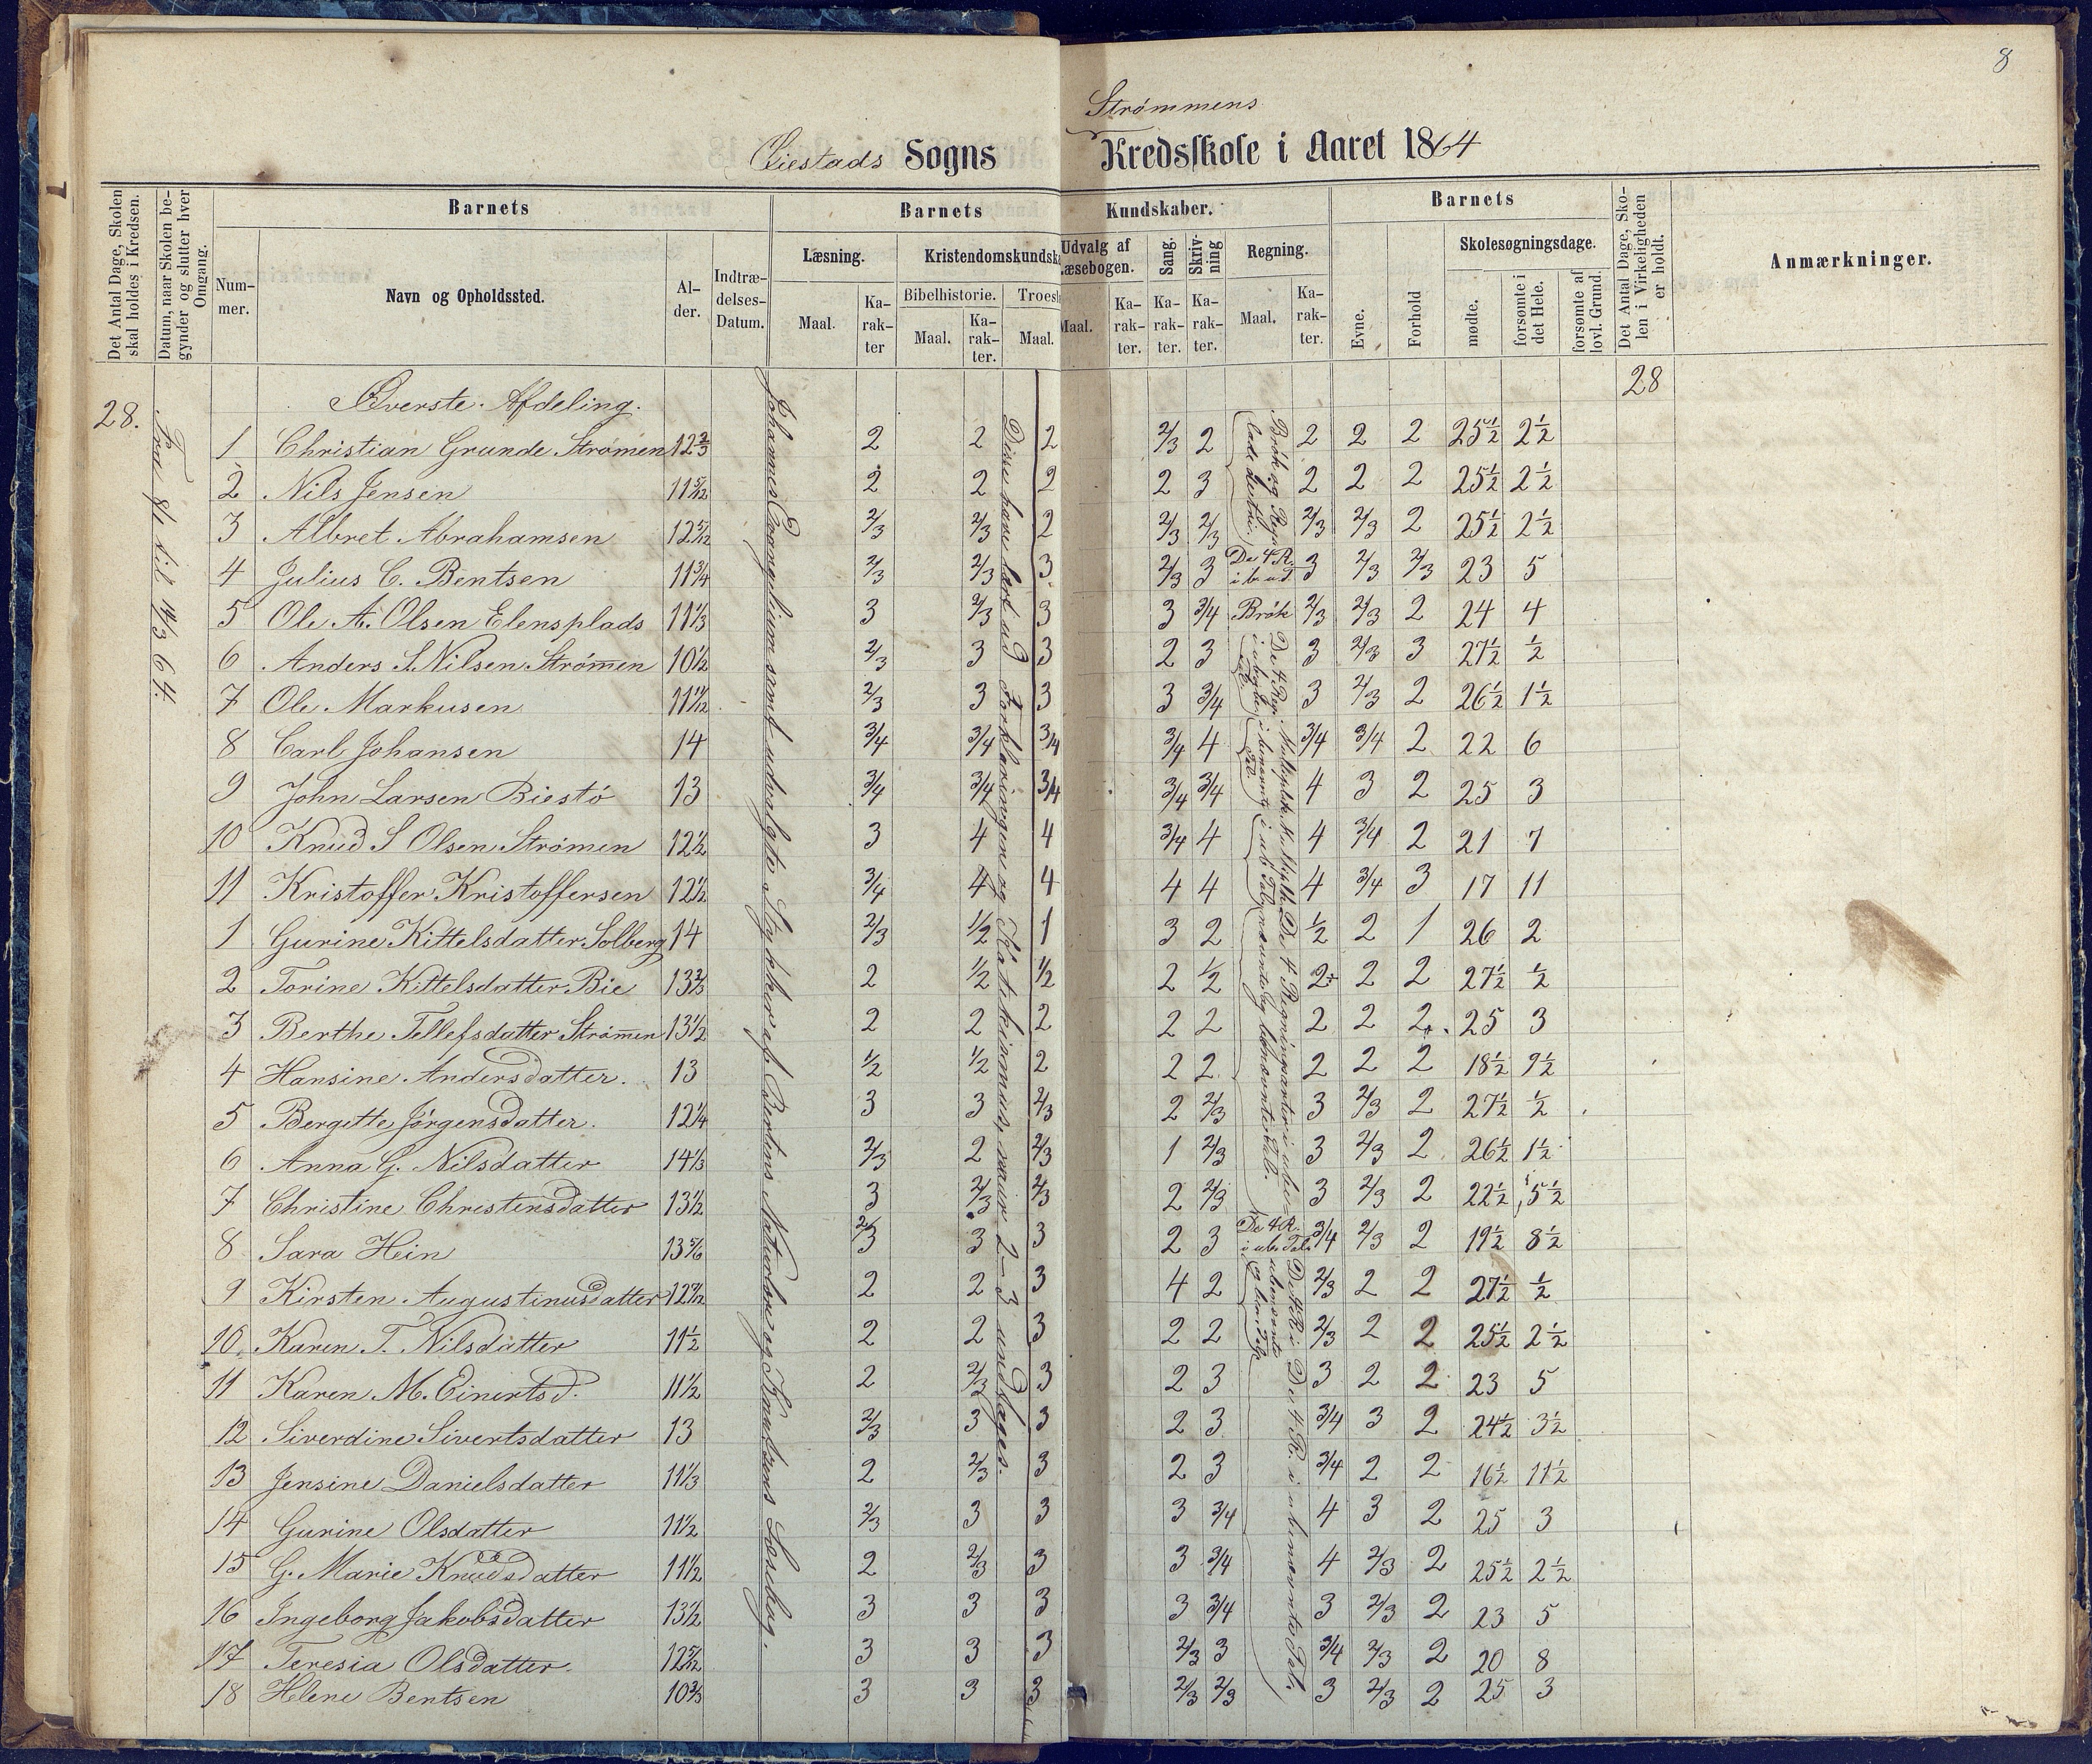 8
Strømmens
Øiestads Sogns Kredsskole i Aaret 1864
Det Antal Dage, Skolen skal holdes i Kredsen.
Datum, naar Skolen begynder og slutter hver Omgang.
Barnets
Nummer.
Navn og Opholdssted.
Alder.
Indtrædelses-Datum.
Barnets
Læsning.
Maal.
Karakter
Kristendomskundska
Bibelhistorie.
Maal.
Karakter.
Troesl
Maal.
Kundskaber.
Udvalg af
Læsebogen.
Maal.
Karakter.
Sang.
Karakter.
Skrivning
Karakter.
Regning.
Maal.
Karakter.
Barnets
Evne.
Forhold
Skolesøgningsdage.
mødte.
forsømte i det Hele.
forsømte af lovl. Grund.
Det Antal Dage, Skolen i Virkeligheden er holdt.
Anmærkninger.
28.
Fra 8/1 til 14/3 64.
28
Øverste Afdeling.
1 Christian Grunde Strømen 12 2/3 2 2 2 2/3 2 2 2 2 25 1/2 2 1/2
2 Nils Jensen 11 5/12 2 2 2 2 3 2 2 2 25 1/2 2 1/2
3 Albret Abrahamsen 12 5/12 2/3 2/3 2 2/3 2/3 2/3 2/3 2 25 1/2 2 1/2
4 Julius C. Bentsen 11 3/4 2/3 2/3 3 2/3 3 3 2/3 2/3 23 5
5 Ole A. Olsen Elensplads 11 1/3 3 2/3 3 3 3/4 Brök 2/3 2/3 2 24 4
6 Anders S. Nilsen Strømen 10 1/2 2/3 3 3 2 3 3 2/3 3 27 1/2 1/2
7 Ole Markusen 11 11/12 2/3 3 3 3 3/4 3 2/3 2 26 1/2 1 1/2
8 Carl Johansen 14 3/4 3/4 3/4 3/4 4 3/4 3/4 2 22 6
9 John Larsen Biestö 13 3/4 3/4 3/4 3/4 3/4 4 3 2 25 3
10 Knud S Olsen Strømen 12 1/2 3 4 4 3/4 4 4 3/4 2 21 7
11 Kristoffer Kristoffersen 12 1/2 3/4 4 4 4 4 4 3/4 3 17 11
1 Gurine Kittelsdatter Solberg 14 2/3 1/2 1 3 2 1/2 2 1 26 2
2 Torine Kittelsdatter Bie 13 2/3 2 1/2 1/2 2 1/2 2÷ 2 2 27 1/2 1/2
3 Berthe Tellefsdatter Strømen 13 1/2 2 2 2 2 2 2 2 2+. 25 3
4 Hansine Andersdatter. 13 1/2 1/2 2 2 2 2 2 2 18 1/2 9 1/2
5 Bergitte Jörgensdatter. 12 1/4 3 3 2/3 2 2/3 3 2/3 2 27 1/2 1/2
6 Anna G. Nilsdatter 14 1/3 2/3 2 2/3 1 2/3 3 2/3 2 26 1/2 1 1/2
7 Christine Christensdatter 13 1/2 3 2/3 2/3 2 2/3 3 2/3 2 22 1/2 5 1/2
8 Sara Hein 13 5/6 2/3 3 3 2 3 3/4 2/3 2 19 1/2 8 1/2
9 Kirsten Augustinusdatter 12 9/12 2 2 3 4 2 2/3 2 2 27 1/2 1/2
10 Karen T. Nilsdatter 11 1/2 2 2 3 2 2 2/3 2 2 25 1/2 2 1/2
11 Karen M. Einertsd. 11 1/2 2 2/3 3 2 3 3 2 2 23 5
12 Siverdine Sivertsdatter 13 2/3 3 3 2 3 3/4 3 2 24 1/2 3 1/2
13 Jensine Danielsdatter 11 1/3 2 2/3 3 2 3 3/4 2 2 16 1/2 11 1/2
14 Gurine Olsdatter 11 1/2 2/3 3 3 3 3/4 4 3 2 25 3
15 G. Marie Knudsdatter 11 1/2 2 2/3 3 3 3/4 4 2/3 2 25 1/2 2 1/2
16 Ingeborg Jakobsdatter 13 1/2 3 3 3 3 3/4 3 2/3 2 23 5
17 Teresia Olsdatter. 12 5/12 3 3 3 2/3 3 3/4 2/3 2 20 8
18 Helene Bentsen 10 2/3 3 3 3 2/3 2/3 3 2/3 2 25 3
Johannes Evangelium samt udvalgte Stykker af Bertens Naturlære og Knutsens Læsebog.
Disse have lært ud Forklaringen og Katekismus, naar 2-3 undtages.
De 4 Regningsarter i ube- nævnte og benævnte Tal.
De 4 R. i ub. Tal.
De 4 R. i ubenævnte Tal.